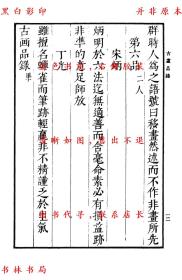 黑白影印
并非原本
古畫品錄
辟時人爲之語號曰移畫然述而不作非畫所先
第六品 二人
宋炳
炳明於六法迄無適善而含毫命素必有損益跡
非準的意足師放
丁光
雖擅名蟬雀而筆跡輕羸非不精謹乏於生氣
古畫品錄
书林书局
书林书局